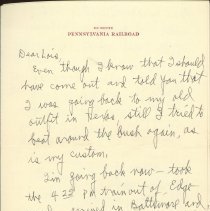 EN ROUTE
PENNSYLVANIA RAILROAD
Dear Lois,
Even though I know that I should
have come out and told you that
I was going back to my old
outfit in Texas, still I tried to
beat around the bush again, as
is my custom.
I'm going back now - took
the 4:23 pm train out of Edge
arrived in Baltimore and